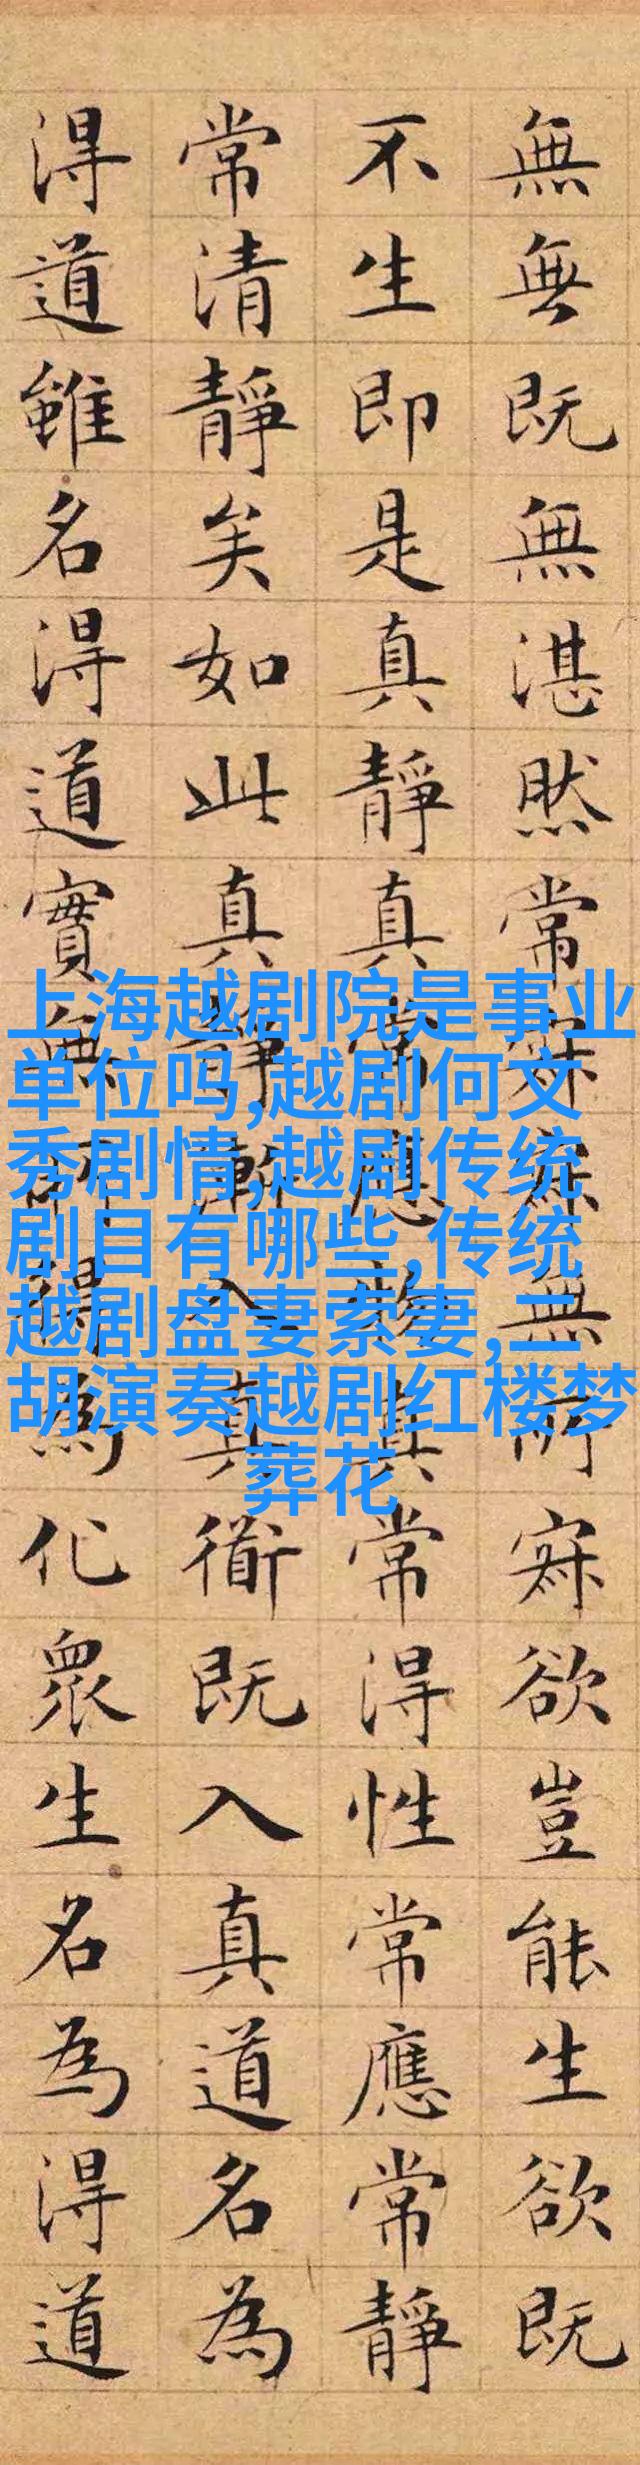 無無既無湛然常寂寂無所寂欲豈能生欲既
不生即是真靜真常應物真常得性常應常靜
常清靜矣如此真靜漸入真衜既入真道名為
得道雖名得道實無所得為化眾生名為得道
上海越剧院是事业
单位吗,越剧何文
秀剧情,越剧传统
剧目有哪些,传统
越剧盘妻索妻,二
胡演奏越剧红楼梦
葬花